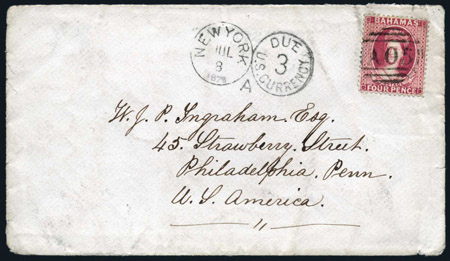 NEW YORK
JUL
8
A
DUE
3
U.S. CURRENCY
BAHAMAS
A05
FOUR PENCE
W. J. P. Ingraham Esq.
45. Strawberry Street.
Philadelphia. Penn.
U. S. America.